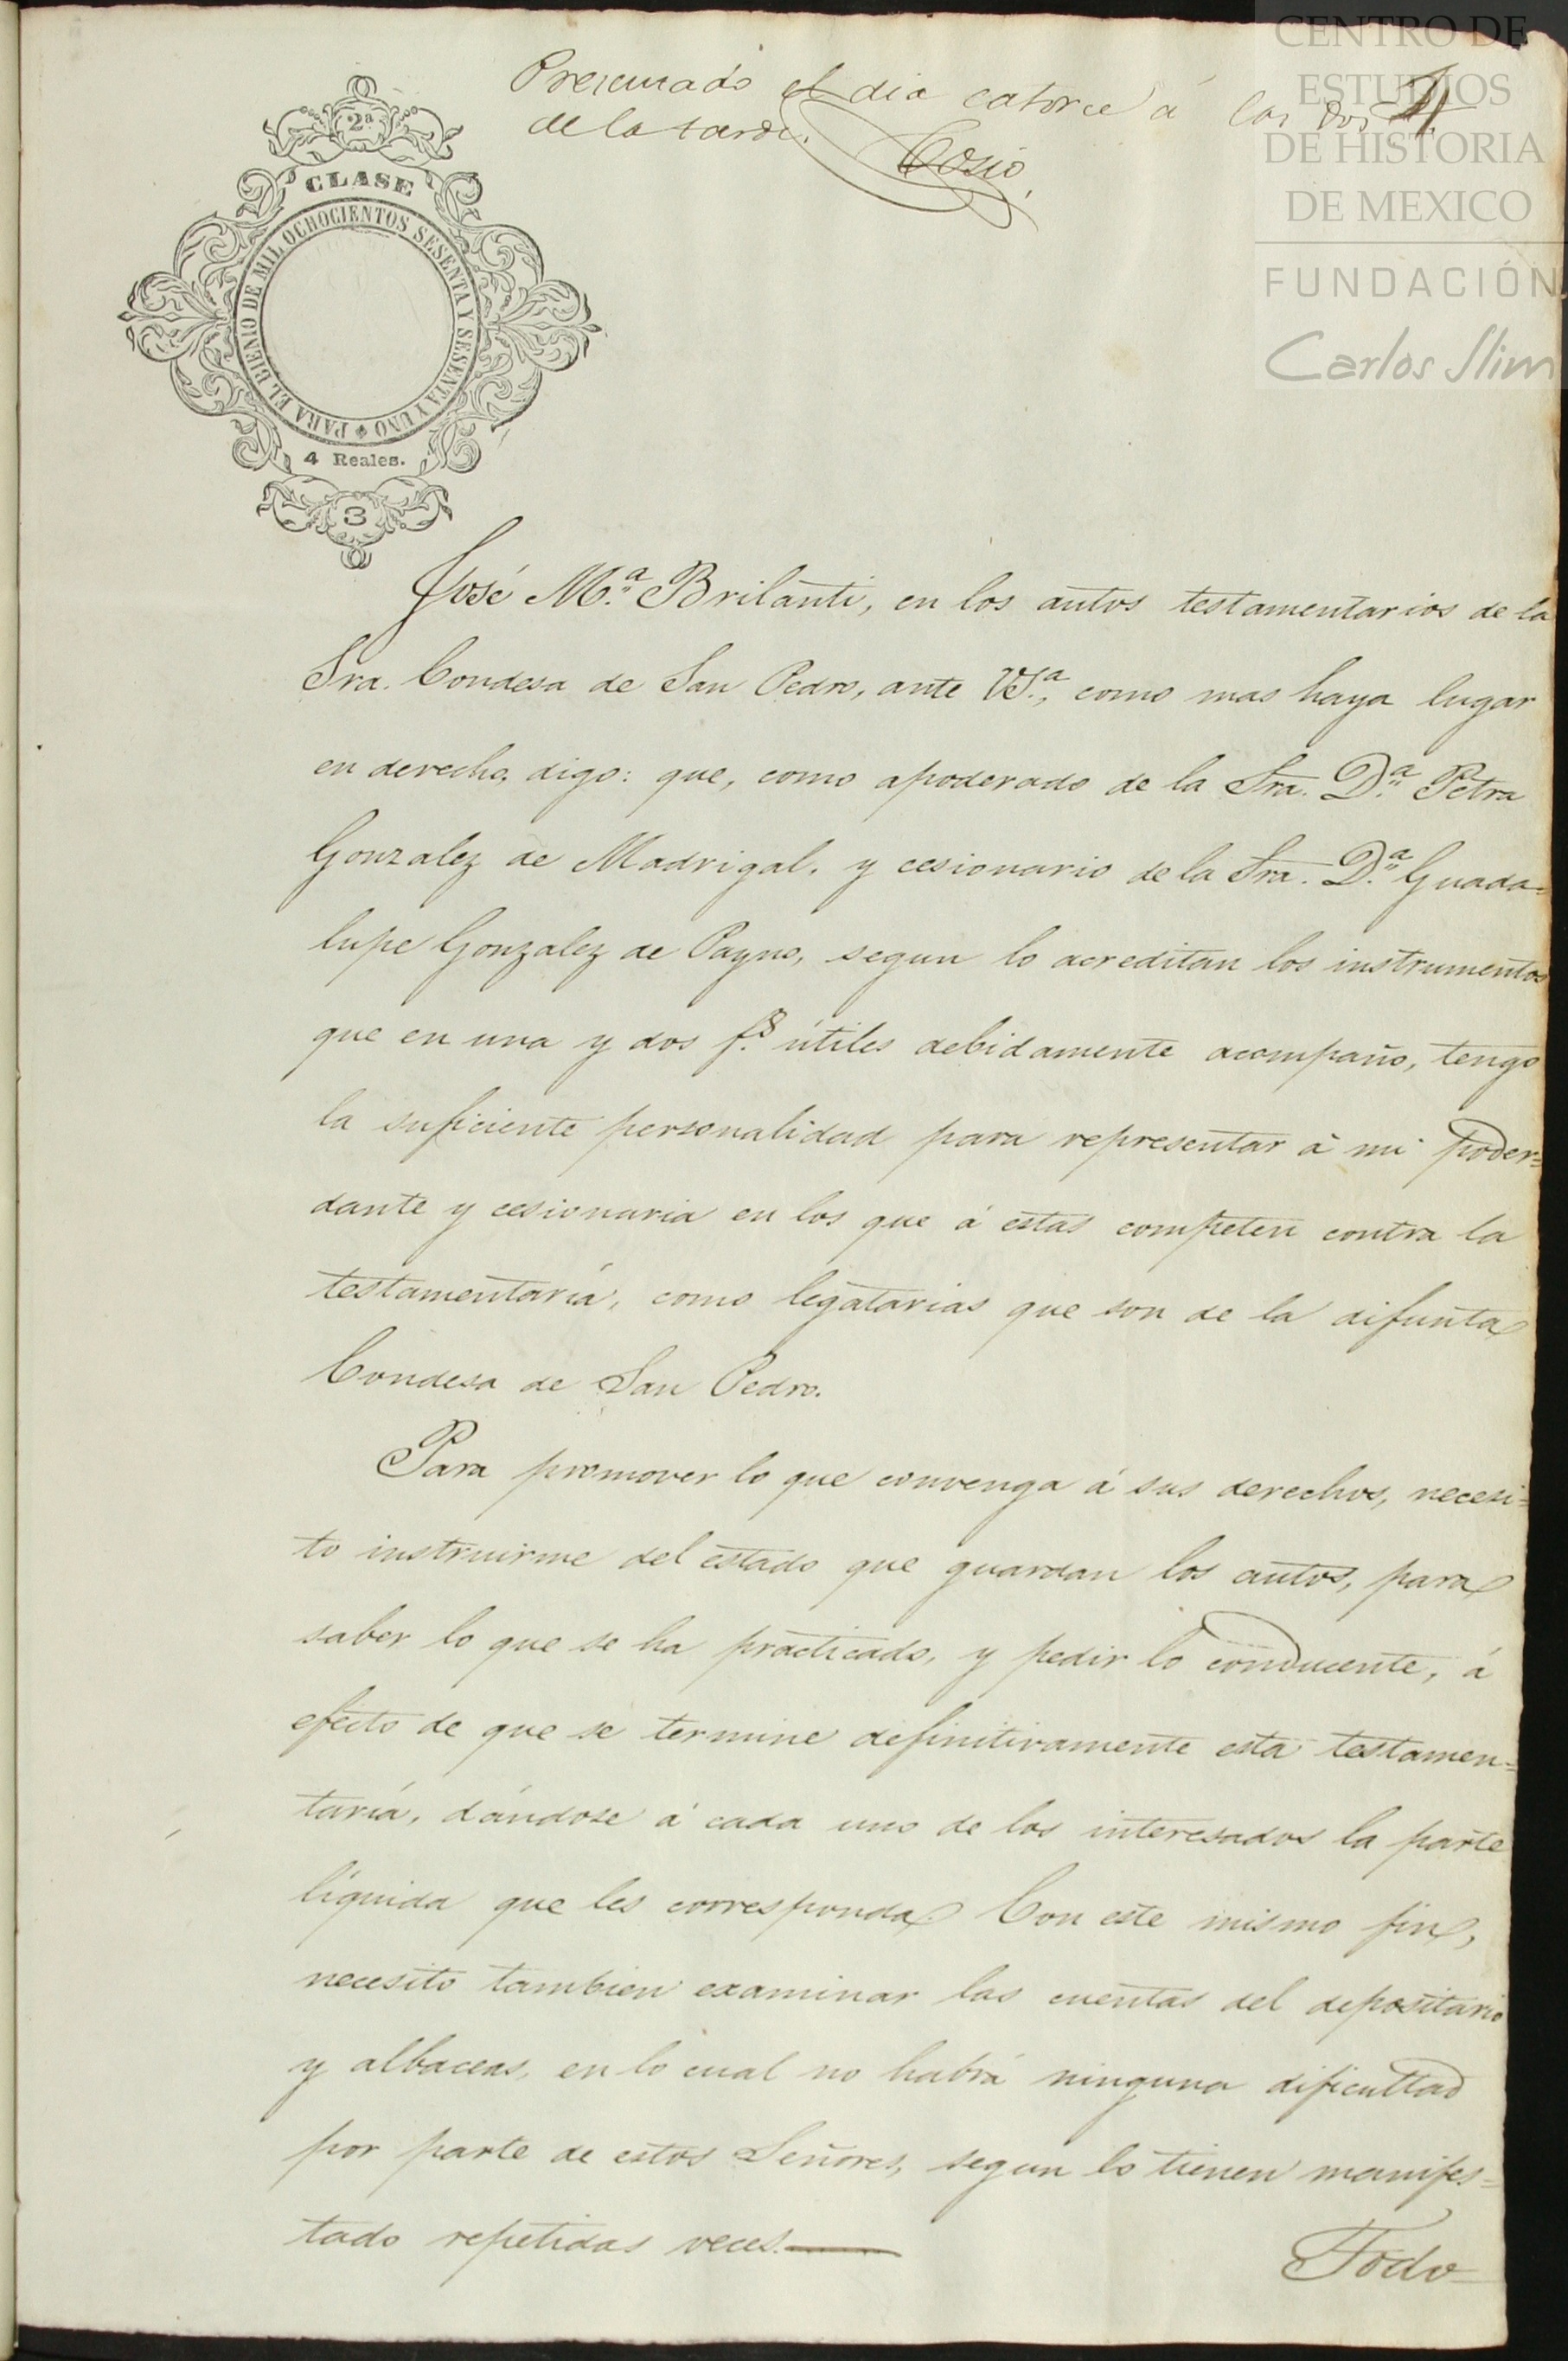 CENTRO DE
ESTUDIOS
DE HISTORIA
DE MEXICO
FUNDACIÓN
Carlos Slim
Presentado el dia catorce á las dos
de la tarde.
Cosio
2ª
CLASE
PARA EL BIENIO DE MIL OCHOCIENTOS SESENTA Y SESENTA Y UNO
4 Reales.
3
José M.ª Brilanti, en los autos testamentarios de la
Sra. Condesa de San Pedro, ante VS.ª, como mas haya lugar
en derecho, digo: que, como apoderado de la Sra. D.ª Petra
Gonzalez de Madrigal, y cesionario de la Sra. D.ª Guada=
lupe Gonzalez de Payno, segun lo acreditan los instrumentos
que en una y dos f.s útiles debidamente acompaño, tengo
la suficiente personalidad para representar á mi poder=
dante y cesionaria en los que á estas competen contra la
testamentaría, como legatarias que son de la difunta
Condesa de San Pedro.
Para promover lo que convenga á sus derechos, necesi=
to instruirme del estado que guardan los autos, para
saber lo que se ha practicado, y pedir lo conducente, á
efecto de que se termine definitivamente esta testamen=
taría, dándose á cada uno de los interesados la parte
líquida que les corresponda. Con este mismo fin,
necesito tambien examinar las cuentas del depositario
y albaceas, en lo cual no habrá ninguna dificultad
por parte de estos Señores, segun lo tienen manifes=
tado repetidas veces.—
Todo=